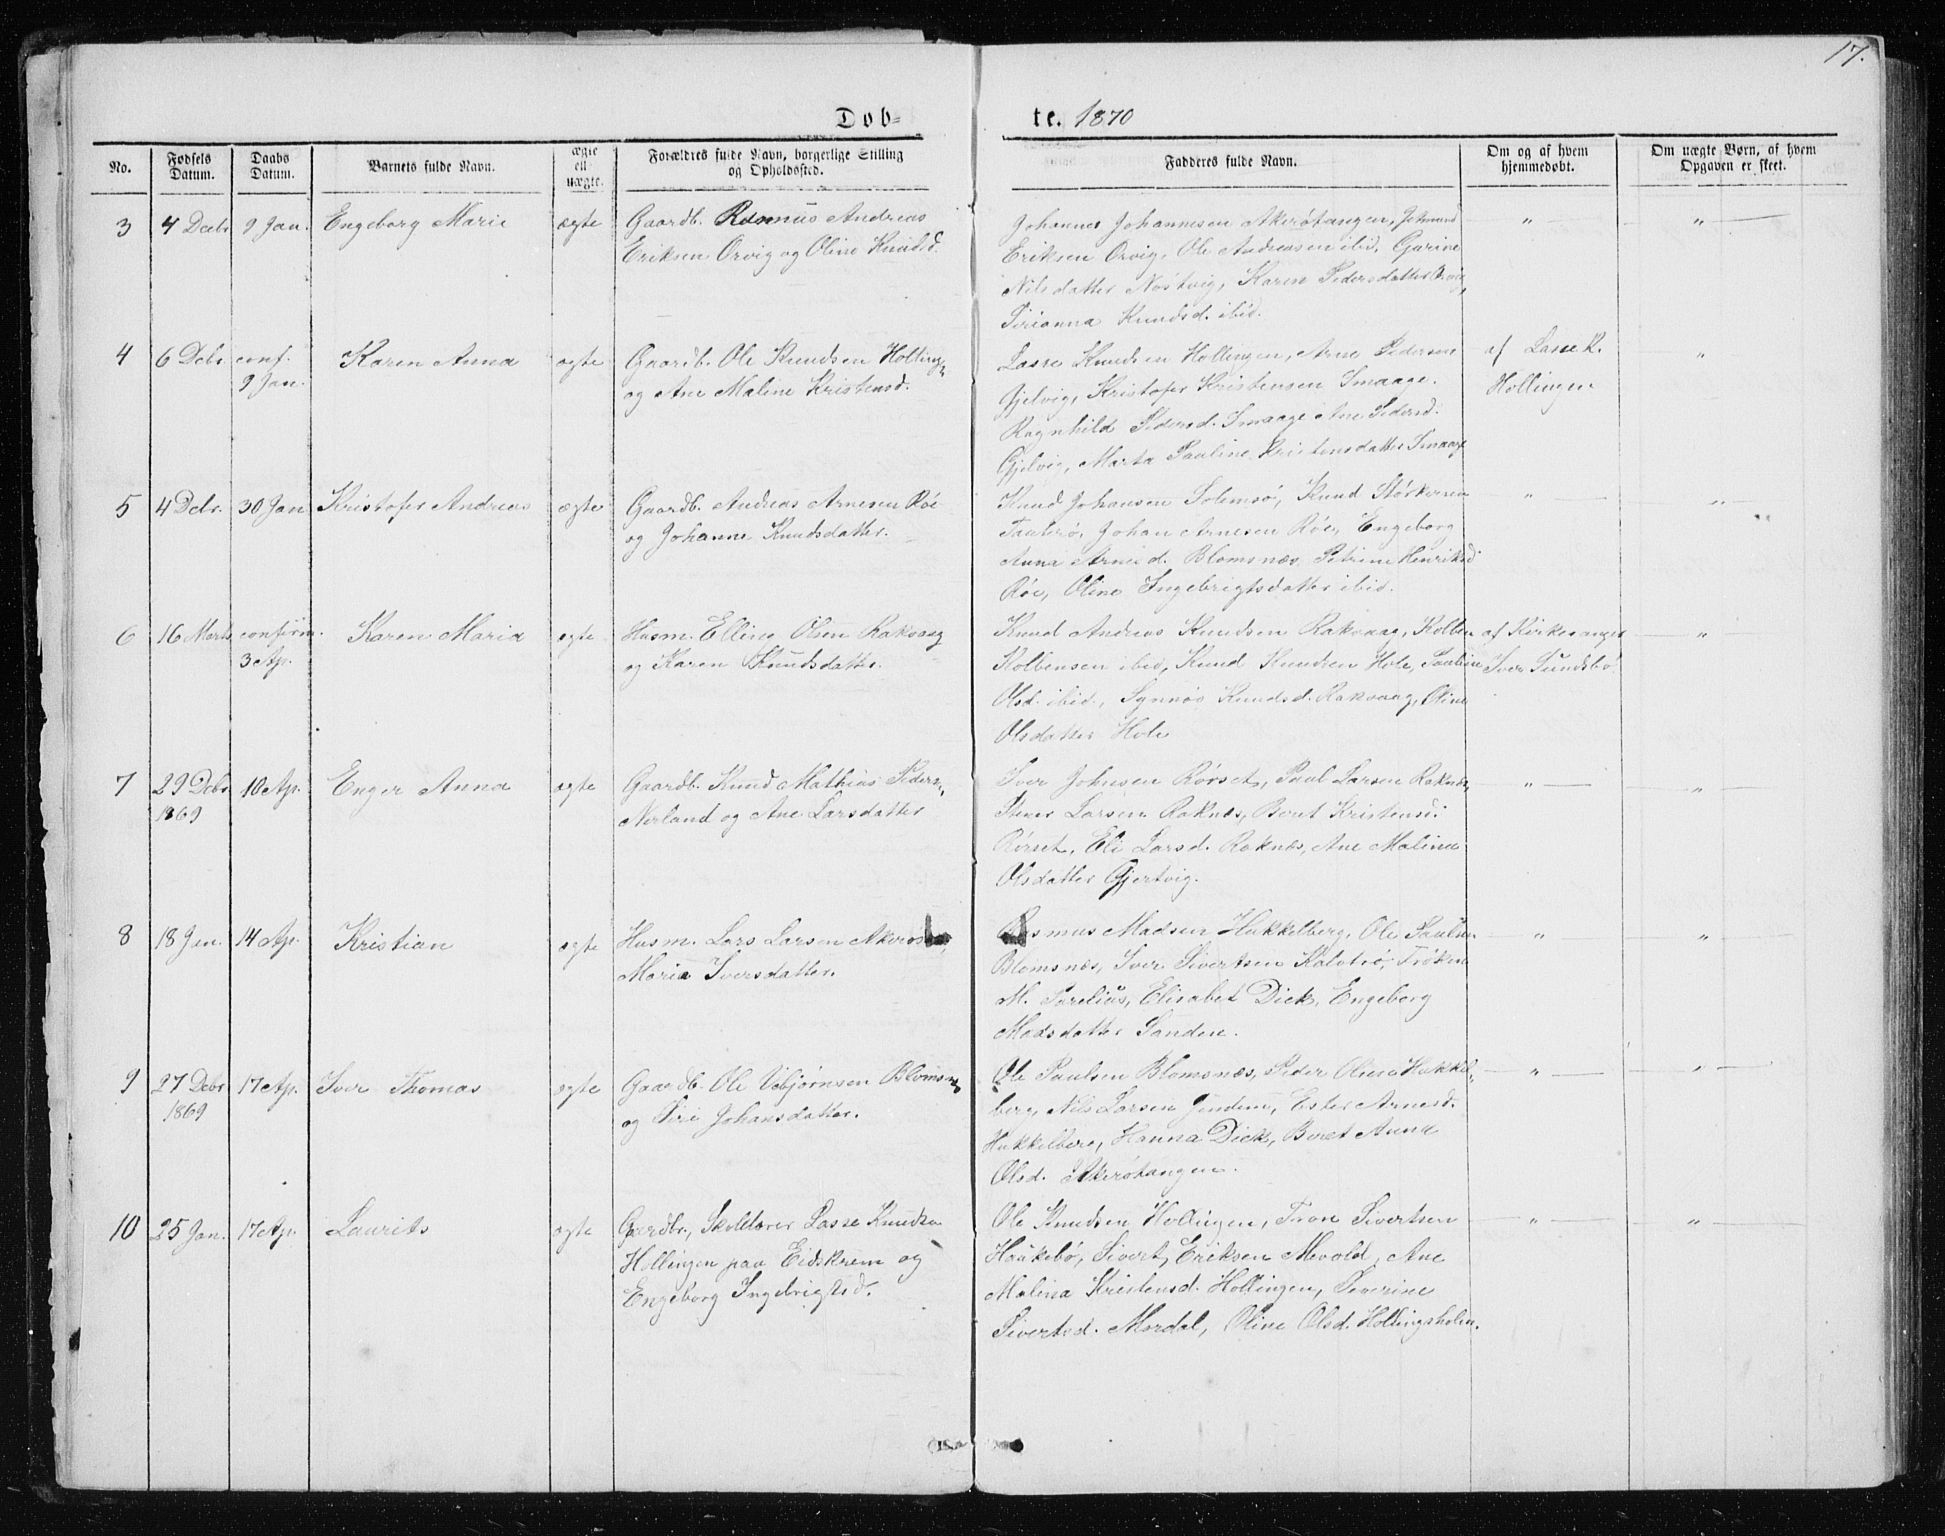 17.
Døb-
te. 1870
No.
Fødsels Datum.
Daabs Datum.
Barnets fulde Navn.
ægte ell. uægte.
Forældres fulde Navn, borgerlige Stilling og Opholdssted.
Fadderes fulde Navn.
Om og af hvem hjemmedøbt.
Om uægte Børn, af hvem Opgaven er skeet.
3 4 Decbr 9 Jan. Engeborg Marie ægte Gaardb. Rasmus Andreas
Eriksen Orvig og Oline Knudsd.
Johannes Johannesen Akerøtangen,
Eriksen Orvig, Ole Andreasen ibid, Gurine
Nilsdatter Nøstvig, Karen Pedersdatter Orvig,
Perianna Knudsd. ibid.
" "
4 6 Dcbr. conf. 9 Jan. Karen Anna ægte Gaardb. Ole Knudsen Holling-
og Ane Maline Kristensd.
Lasse Knudsen Hollingen, Arne Pedersen
Gjelvig, Kristofer Kristensen Smaage.
Ragnhild Pedersd. Smaage Ane Pedersd.
Gjelvig, Marta Pauline Kristensdatter Smaage
af Lasse K.
Hollingen
"
5 4 Dcbr. 30 Jan Kristofer Andreas ægte Gaardb. Andreas Arnesen Röe
og Johanne Knudsdatter.
Knud Johansen Solemsø, Knud Størkersen
Tauterø, Johan Arnesen Röe, Engeborg
Anna Arnesd. Blomsnæs, Petrine Henriksd
Röe, Oline Ingebrigtsdatter ibid.
" "
6 16 Marts confirm. 3 Ap. Karen Maria ægte Husm. Elling Olsen Rakvaag
og Karen Knudsdatter.
Knud Andreas Knudsen Rakvaag, Kolben
Kolbensen ibid, Knud Knudsen Hole, Pauline
Olsd. ibid., Synnøv Knudsd. Rakvaag, Oline
Olsdatter Hole
af Kirkesanger
Iver Sundsbø
"
7 29 Dcbr 1869 10 Ap. Enger Anna ægte Gaardb. Knud Mathias Peders.
Nerland og Ane Larsdatter
Iver Johnsen Rørset, Paul Larsen Raknæs,
Stener Larsen Raknæs, Beret Kristensd.
Rørset, Eli Larsd. Raknæs, Ane Malina
Olsdatter Gjertvig.
" "
8 18 Jan. 14 Ap. Kristian ægte Husm. Lars Larsen Akerø
Maria Iversdatter.
Rasmus Madsen Hukkelberg, Ole Paulsen
Blomsnæs, Iver Sivertsen Kalvtrø, Frøken
M. Parelius, Elisabet Dick, Engeborg
Madsdatter Sanden.
" "
9 27 Dcbr 1869 17 Ap. Iver Thomas ægte Gaardb. Ole Vebjørnsen Blomsnæs
og Siri Johansdatter.
Ole Paulsen Blomsnæs, Peder Olsen Hukkel-
berg, Nils Larsen Jendem, Ester Arnesd.
Hukkelberg, Hanna Dick, Beret Anna
Olsd. Akerøtangen.
" "
10 25 Jan. 17 Ap. Laurits ægte Gaardbr., Skolelærer Lasse Knudsen
Hollingen paa Eidskrem og
Engeborg Ingebrigtsd.
Ole Knudsen Hollingen, Tron Sivertsen
Haukebø, Sivert Eriksen Mevold, Ane
Malina Kristensd. Hollingen, Severine
Sivertsd. Mordal, Oline Olsd. Hollingsholm.
" "